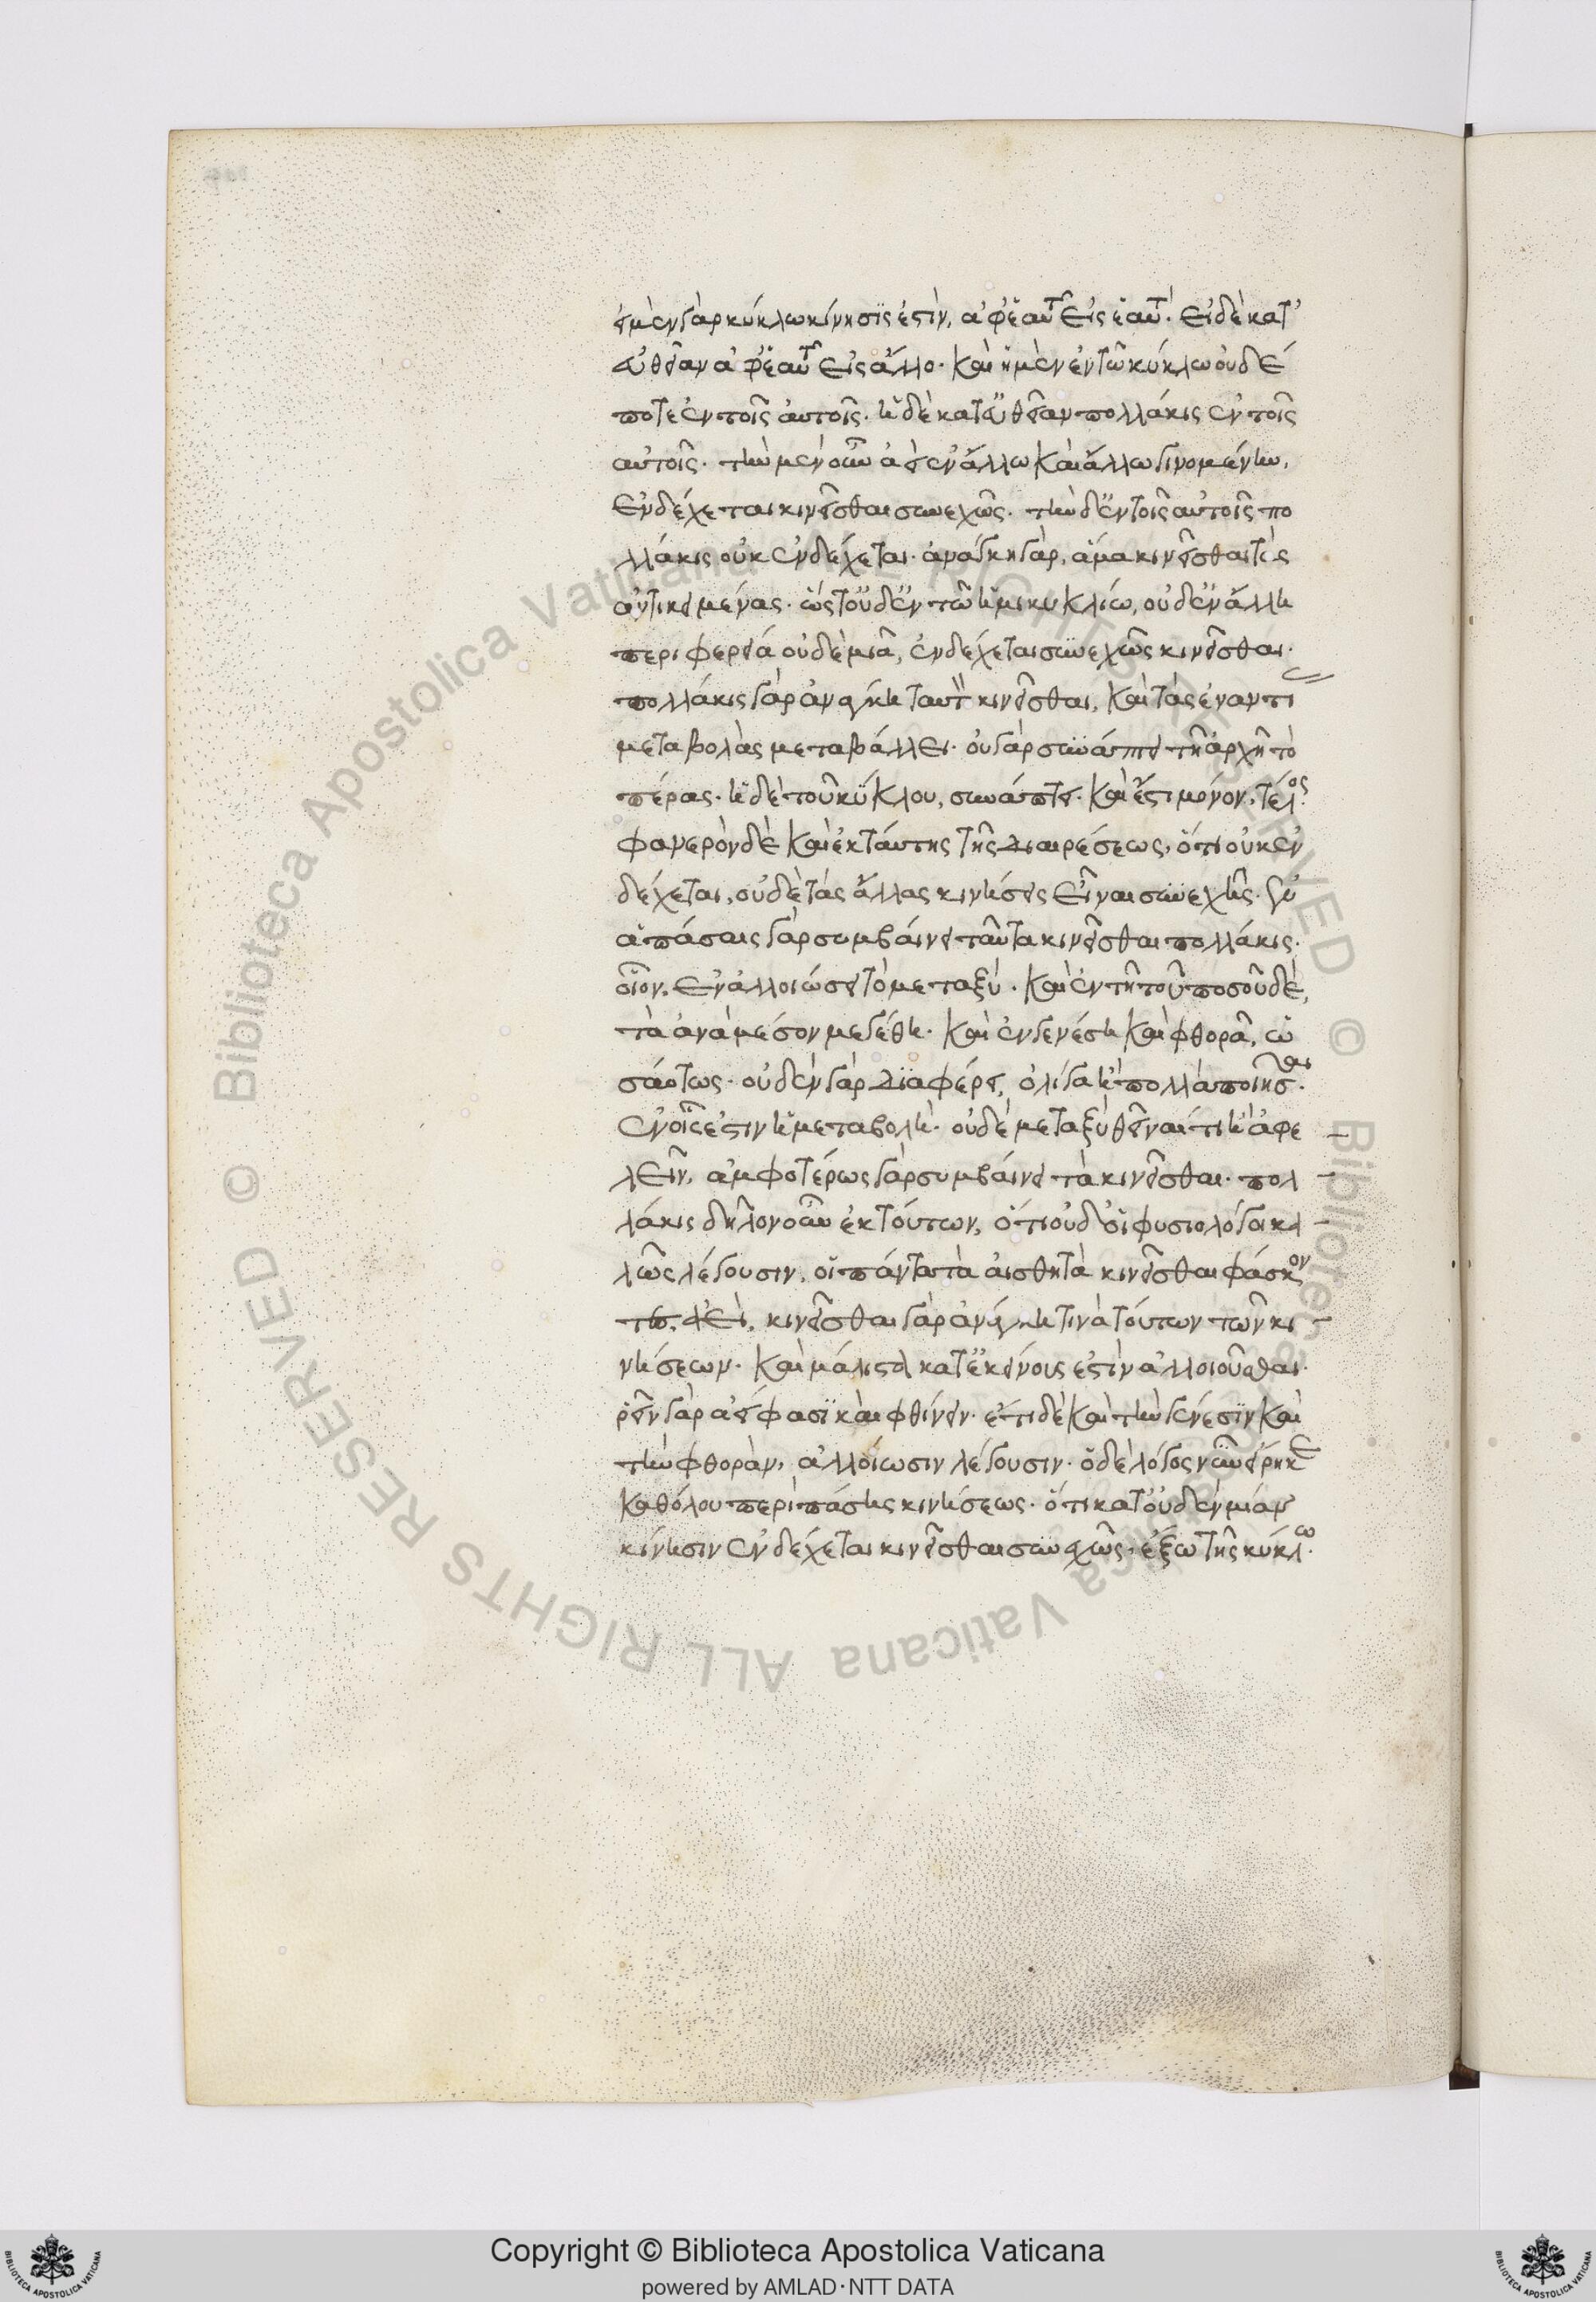 εἰ μὲν γὰρ κύκλω κίνησϊς ἐστὶν, ἀφ' ἑαυτοῦ εἰς ἑαυτό. εἰ δὲ κατ'
εὐθεῖαν ἀφ' ἑαυτοῦ εἰς ἄλλο. καὶ ἡ μὲν ἐν τῶ κύκλω οὐδέ
ποτε ἐν τοῖς αὐτοῖς. ἡ δὲ κατ' εὐθεῖαν πολλάκις ἐν τοῖς
αὐτοῖς. τὴν μὲν οὖν ἀεὶ ἐν ἄλλω καὶ ἄλλω γινομένην,
ἐνδέχεται κινεῖσθαι συνεχῶς. τὴν δ' ἐν τοῖς αὐτοῖς πο
λλάκις οὐκ ἐνδέχεται. ἀνάγκη γὰρ, ἅμα κινεῖσθαι τὰς
ἀντικειμένας. ὥστ' οὐδ' ἐν τῶ ἡμικυκλίω, οὐδ' ἐν ἄλλη
περιφερείᾳ οὐδεμιᾷ, ἐνδέχεται συνεχῶς κινεῖσθαι.
πολλάκις γὰρ ἀνάγκη ταυτὰ κινεῖσθαι, καὶ τὰς ἐναντί
μεταβολὰς μεταβάλλει. οὐ γὰρ συνάπτει τῆ ἀρχῆ τὸ
πέρας. ἡ δὲ τοῦ κύκλου, συνάπτει. καὶ ἔστι μόνον, τέλος.
φανερὸν δὲ καὶ ἐκ ταύτης τῆς διαιρέσεως, ὅτι οὐκ ἐν
δέχεται, οὐδὲ τὰς ἄλλας κινήσεις εἶναι συνεχῆς. ἐν
ἁπάσαις γὰρ συμβαίνει ταῦτα κινεῖσθαι πολλάκις.
οἷον, ἐν ἀλλοιώσει τὸ μεταξύ. καὶ ἐν τῆ τοῦ ποσοῦ δὲ,
τὰ ἀνὰ μέσον μεγέθη. καὶ ἐν γενέσει καὶ φθορᾷ, ὡ
σάυτως. οὐδὲν γὰρ διαφέρει, ὀλίγα ἢ πολλὰ ποιῆσαι.
ἐν οἷς ἐστιν ἡ μεταβολή. οὐδὲ μεταξὺ θεῖναί τι ἢ ἀφε
λεῖν, ἀμφοτέρως γὰρ συμβαίνει τὰ κινεῖσθαι. πολ
λάκις δῆλον οὖν ἐκ τούτων, ὅτι οὐδ' οἱ φυσιολόγοι κα
λῶς λέγουσιν, οἱ πάντα τὰ αἰσθητὰ κινεῖσθαι φάσκον
τες, ἀεὶ. κινεῖσθαι γὰρ ἀνάγκη τινὰ τούτων τῶν κι
νήσεων. καὶ μάλιστα κατ' ἐκείνους ἐστὶν ἀλλοιοῦσθαι.
ῥεῖν γὰρ ἀεί φασϊ καὶ φθίνειν. ἔτι δὲ καὶ τὴν γένεσϊν καὶ
τὴν φθορὰν, ἀλλοίωσιν λέγουσιν. ὁ δὲ λόγος νῦν εἴρηκε
καθόλου περὶ πάσης κινήσεως. ὅτι κατ' οὐδεμίαν
κίνησιν ἐνδέχεται κινεῖσθαι συνεχῶς. ἔξω τῆς κύκλω.
Copyright © Biblioteca Apostolica Vaticana
powered by AMLAD·NTT DATA